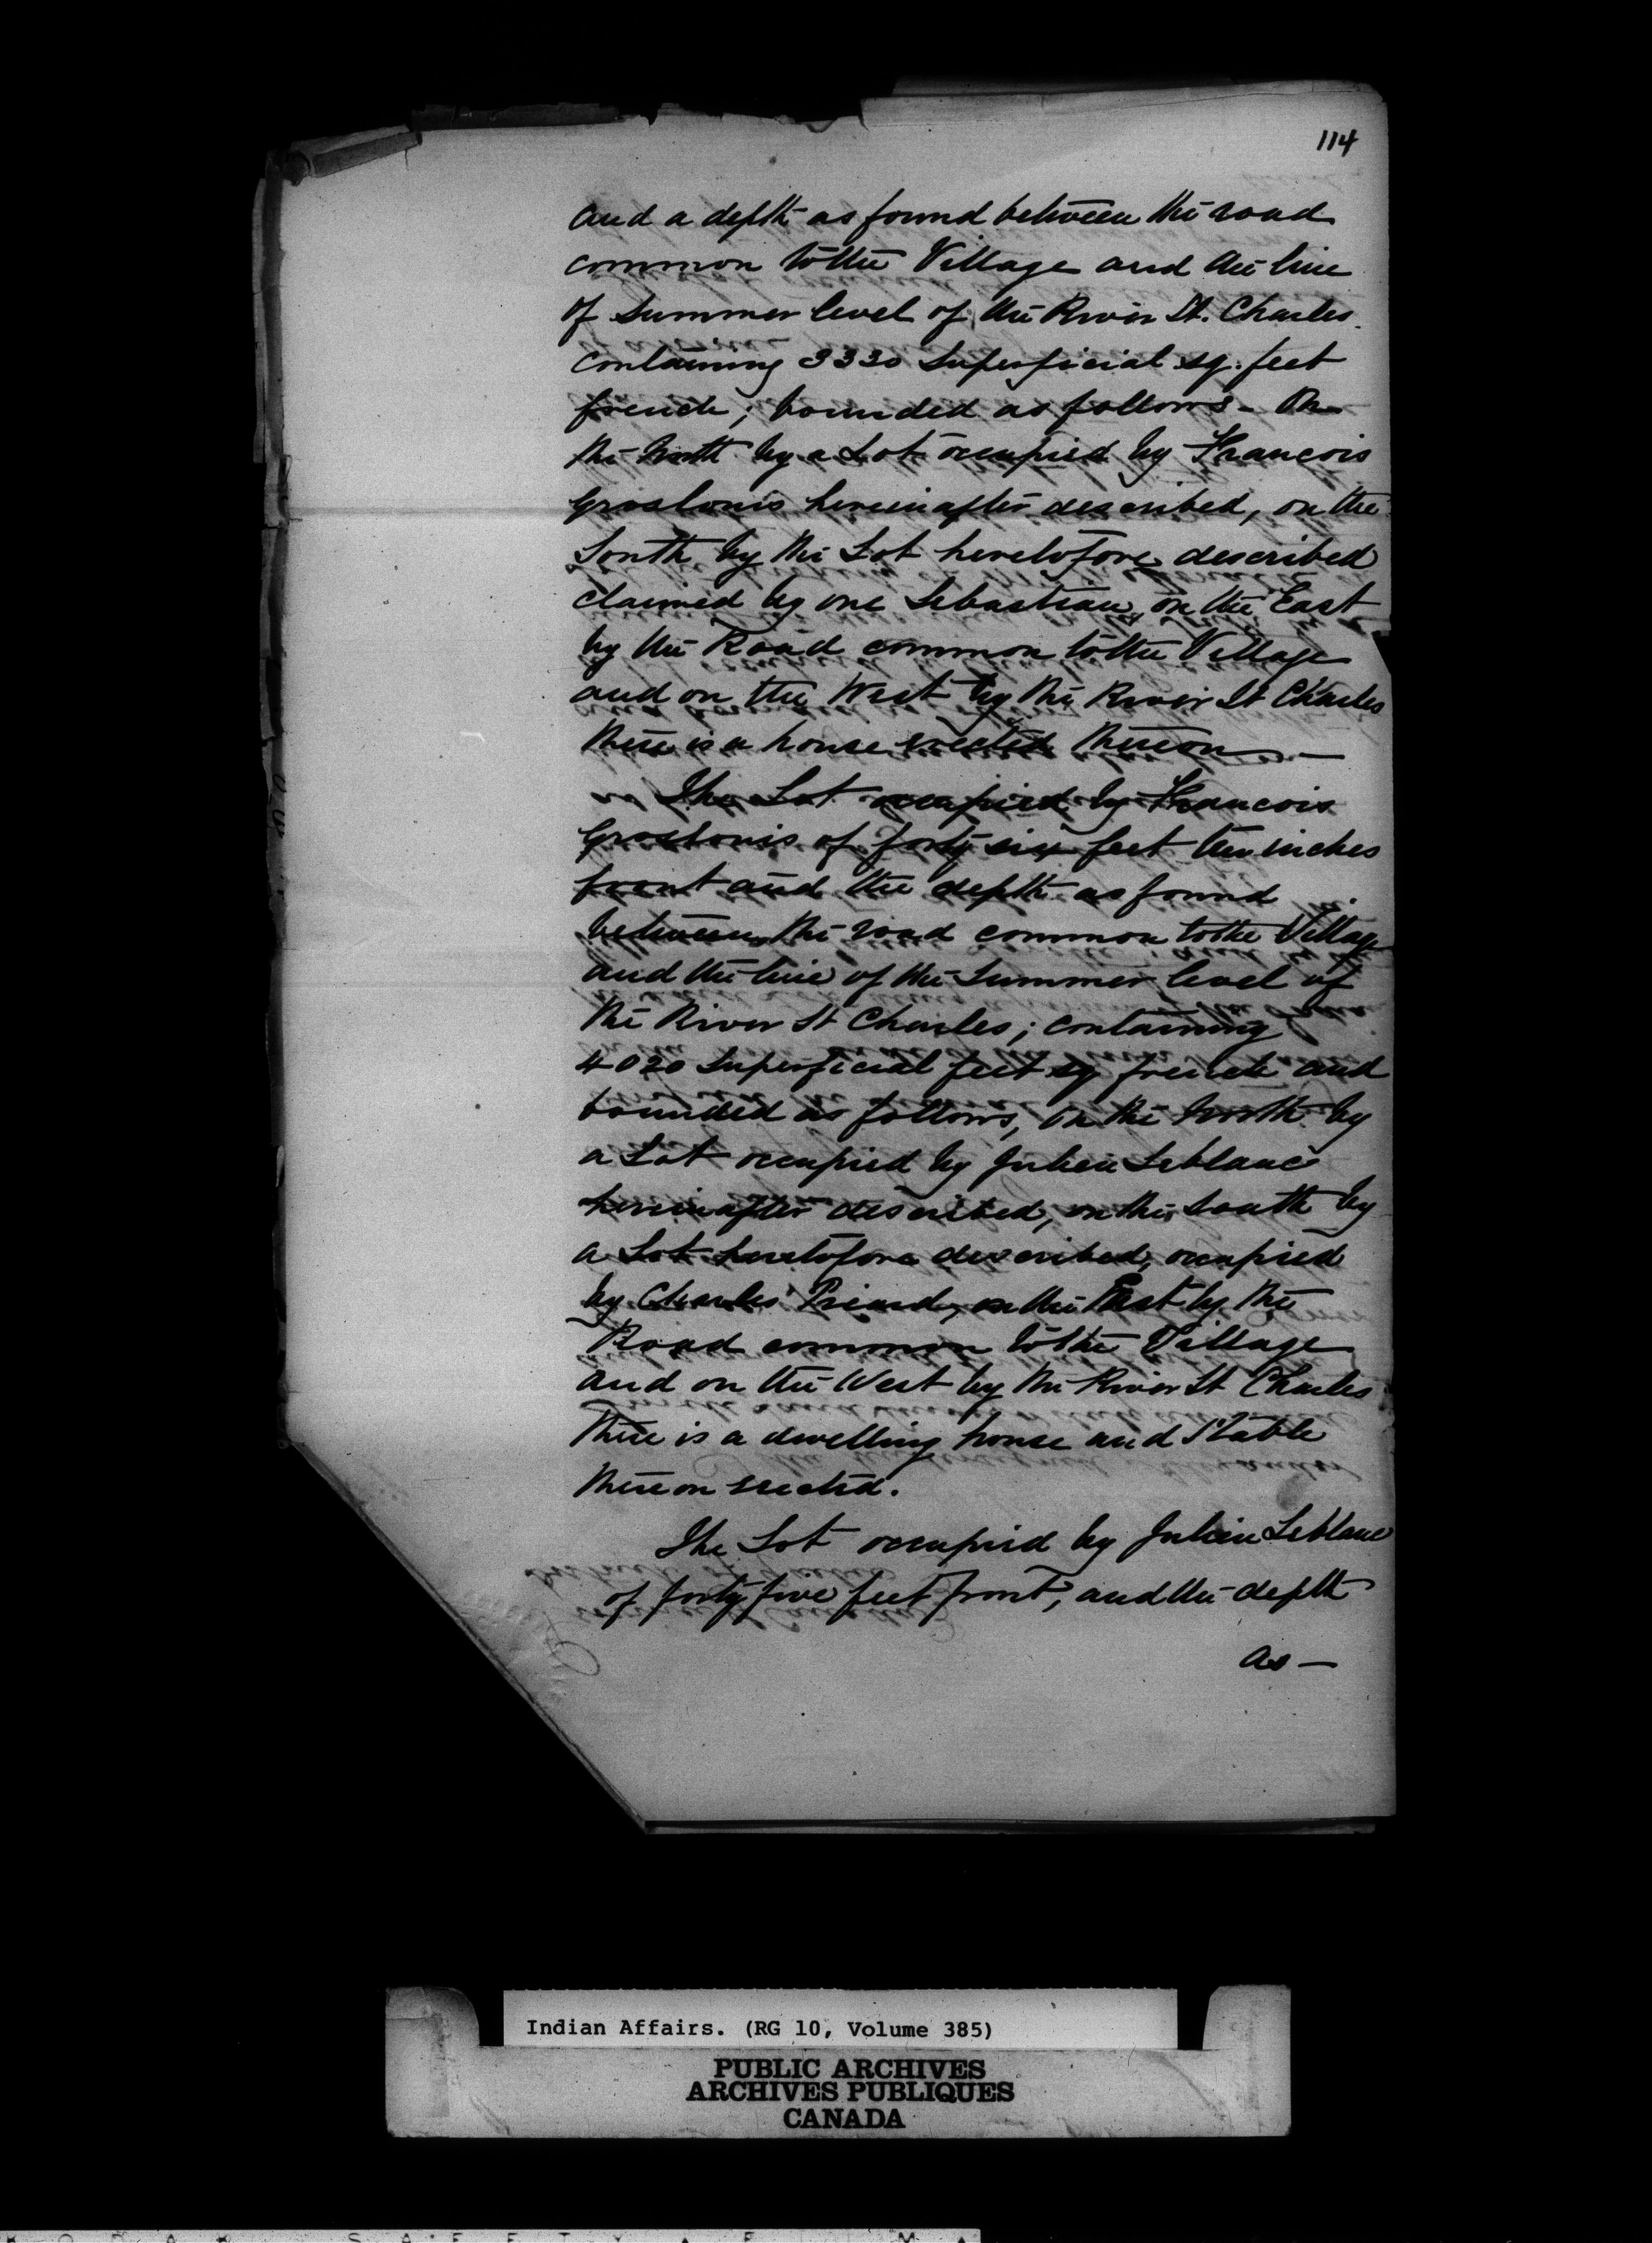 114
and a depth as found between the road
common to the Village and the line
of summer level of the River St. Charles
containing 3330 Superficial sq. feet
french; bounded as follows - On
the North by a Lot occupied by Francois
Groslouis hereinafter described, on the
South by the Lot heretofore described
claimed by one Sebastian, on the East
by the Road common to the Village
and on the West by the River St Charles
there is a house erected thereon —
The Lot occupied by Francois
Groslouis of forty six feet ten inches
front and the depth as found
between the road common to the Village
and the line of the Summer level of
the River St Charles; containing
4020 Superficial feet sq french and
bounded as follows, on the North by
a Lot occupied by Julien Leblanc
hereinafter described, on the South by
a Lot heretofore described, occupied
by Charles Picard, on the East by the
Road common to the Village
and on the West by the River St Charles
there is a dwelling house and Stable
thereon erected.
The Lot occupied by Julien Leblanc
of forty five feet front, and the depth
as —
Indian Affairs. (RG 10, Volume 385)
PUBLIC ARCHIVES
ARCHIVES PUBLIQUES
CANADA